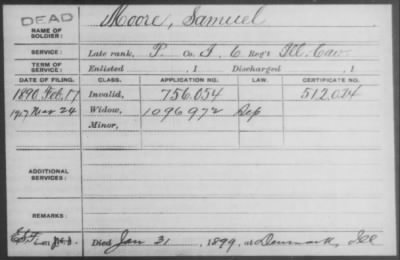 DEAD
NAME OF SOLDIER:
Moore, Samuel
SERVICE: Late rank, P. Co. I, 6 Reg't Ill. Cav.
TERM OF SERVICE: Enlisted , 1 Discharged , 1
DATE OF FILING. CLASS. APPLICATION NO. LAW. CERTIFICATE NO.
1890 Feb. 17 Invalid, 756.054 512,024
1917 Mar 24 Widow, 1096972 Dep
Minor,
ADDITIONAL SERVICES:
REMARKS:
Died Jan 31, 1899, at Denmark, Ill